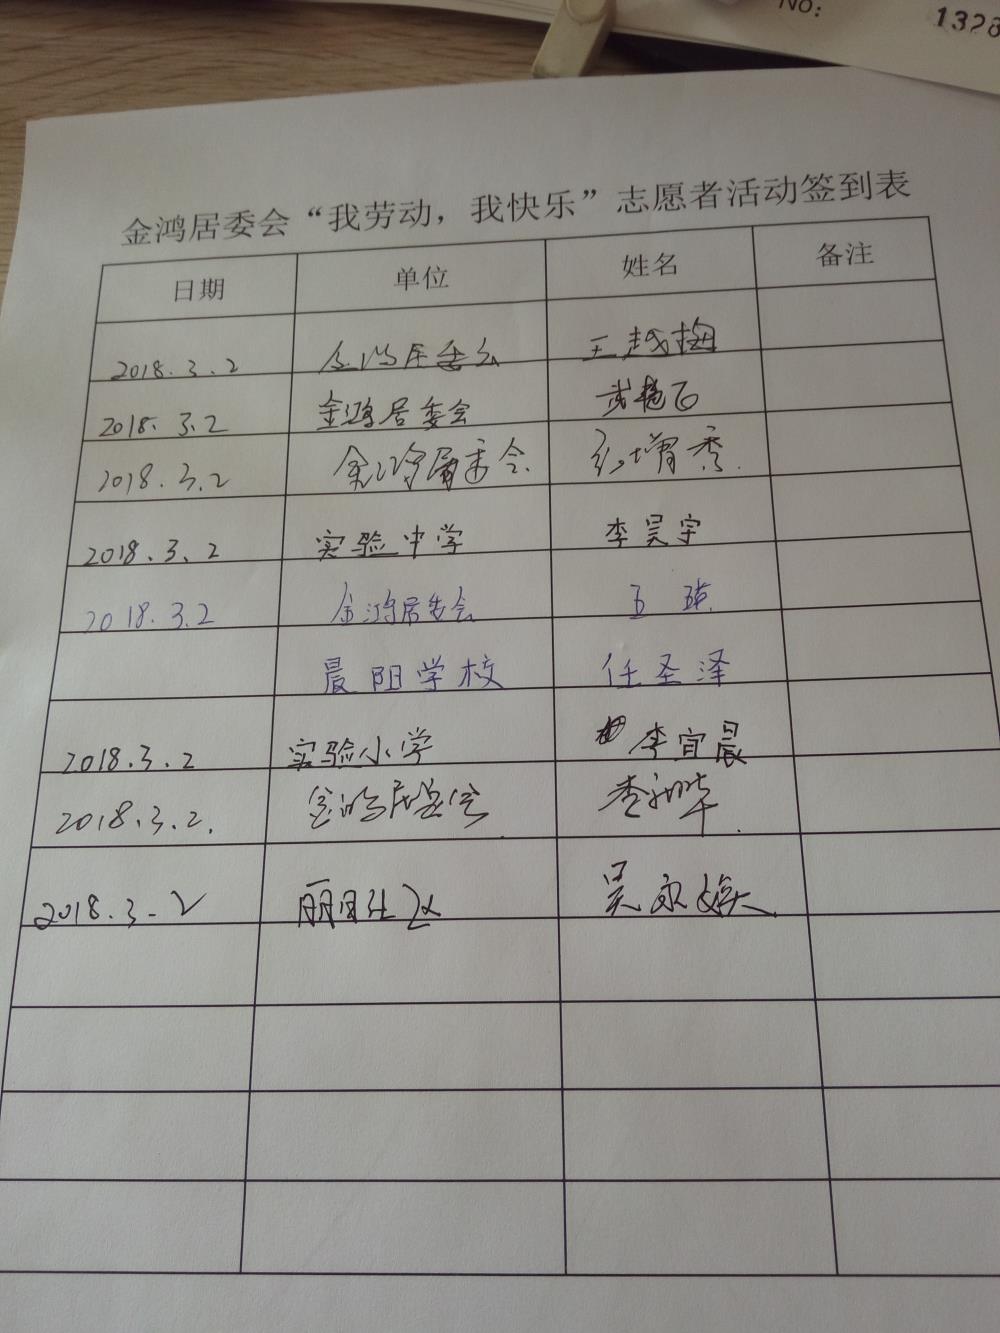 No:
1328
金鸿居委会“我劳动，我快乐”志愿者活动签到表
日期 单位 姓名 备注
2018.3.2 金鸿居委会 王越梅
2018.3.2 金鸿居委会 武艳飞
2018.3.2 金鸿居委会 增秀
2018.3.2 实验中学 李昊宇
2018.3.2 金鸿居委会 王瑛
晨阳学校 任圣泽
2018.3.2 实验小学 李宜晨
2018.3.2. 金鸿居委会 李
2018.3.2 丽日社区 吴永焕